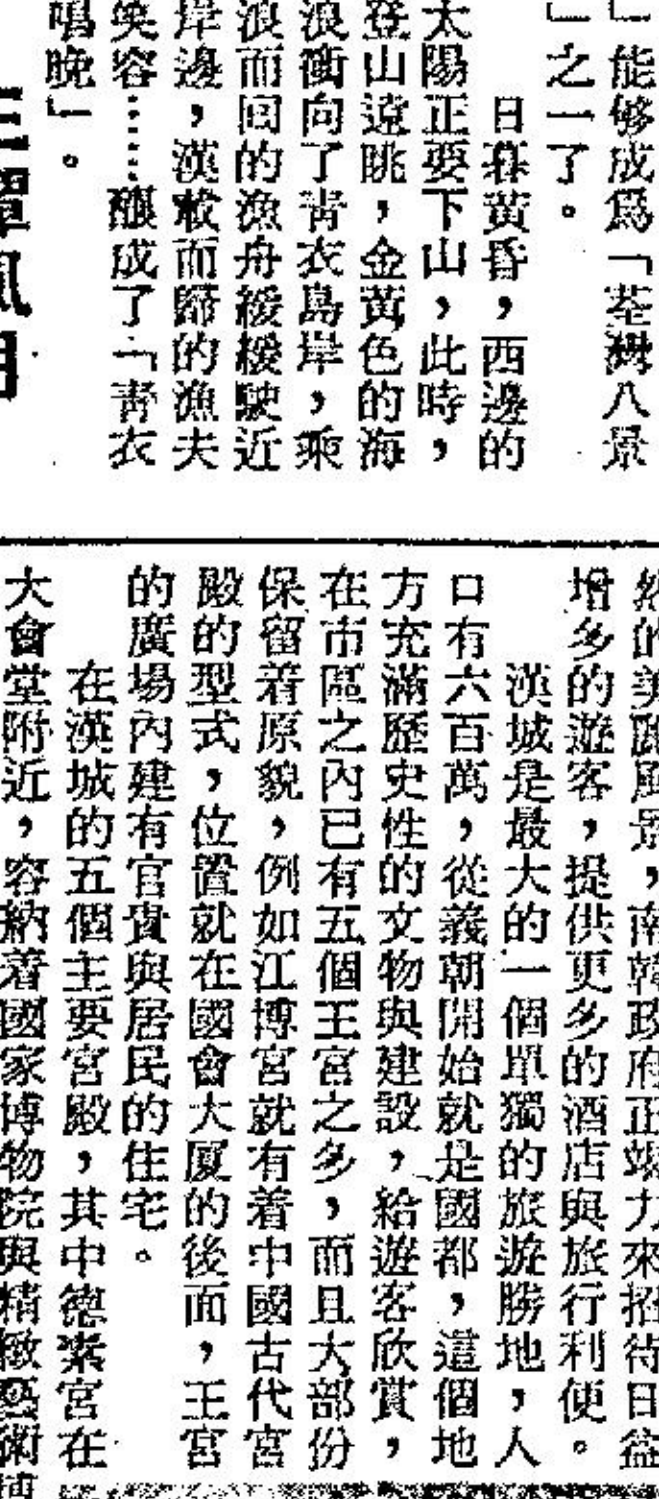 」能够成爲「荃灣八景
」之一了。
日暮黃昏，西邊的
太陽正要下山，此時，
登山遠眺，金黃色的海
浪衝向了青衣島岸，乘
浪而回的漁舟緩緩駛近
岸邊，漢載而歸的漁夫
笑容……釀成了「青衣
唱晚」。
然的美麗風景，南韓政府正竭力來招待日益
增多的遊客，提供更多的酒店與旅行利便。
漢城是最大的一個單獨的旅游勝地，人
口有六百萬，從義朝開始就是國都，這個地
方充滿歷史性的文物與建設，給遊客欣賞，
在市區之內已有五個王宮之多，而且大部份
保留着原貌，例如江博宮就有着中國古代宮
殿的型式，位置就在國會大厦的後面，王宮
的廣場內建有官貴與居民的住宅。
在漢城的五個主要宮殿，其中德素宮在
大會堂附近，容納着國家博物院與精緻藝術博